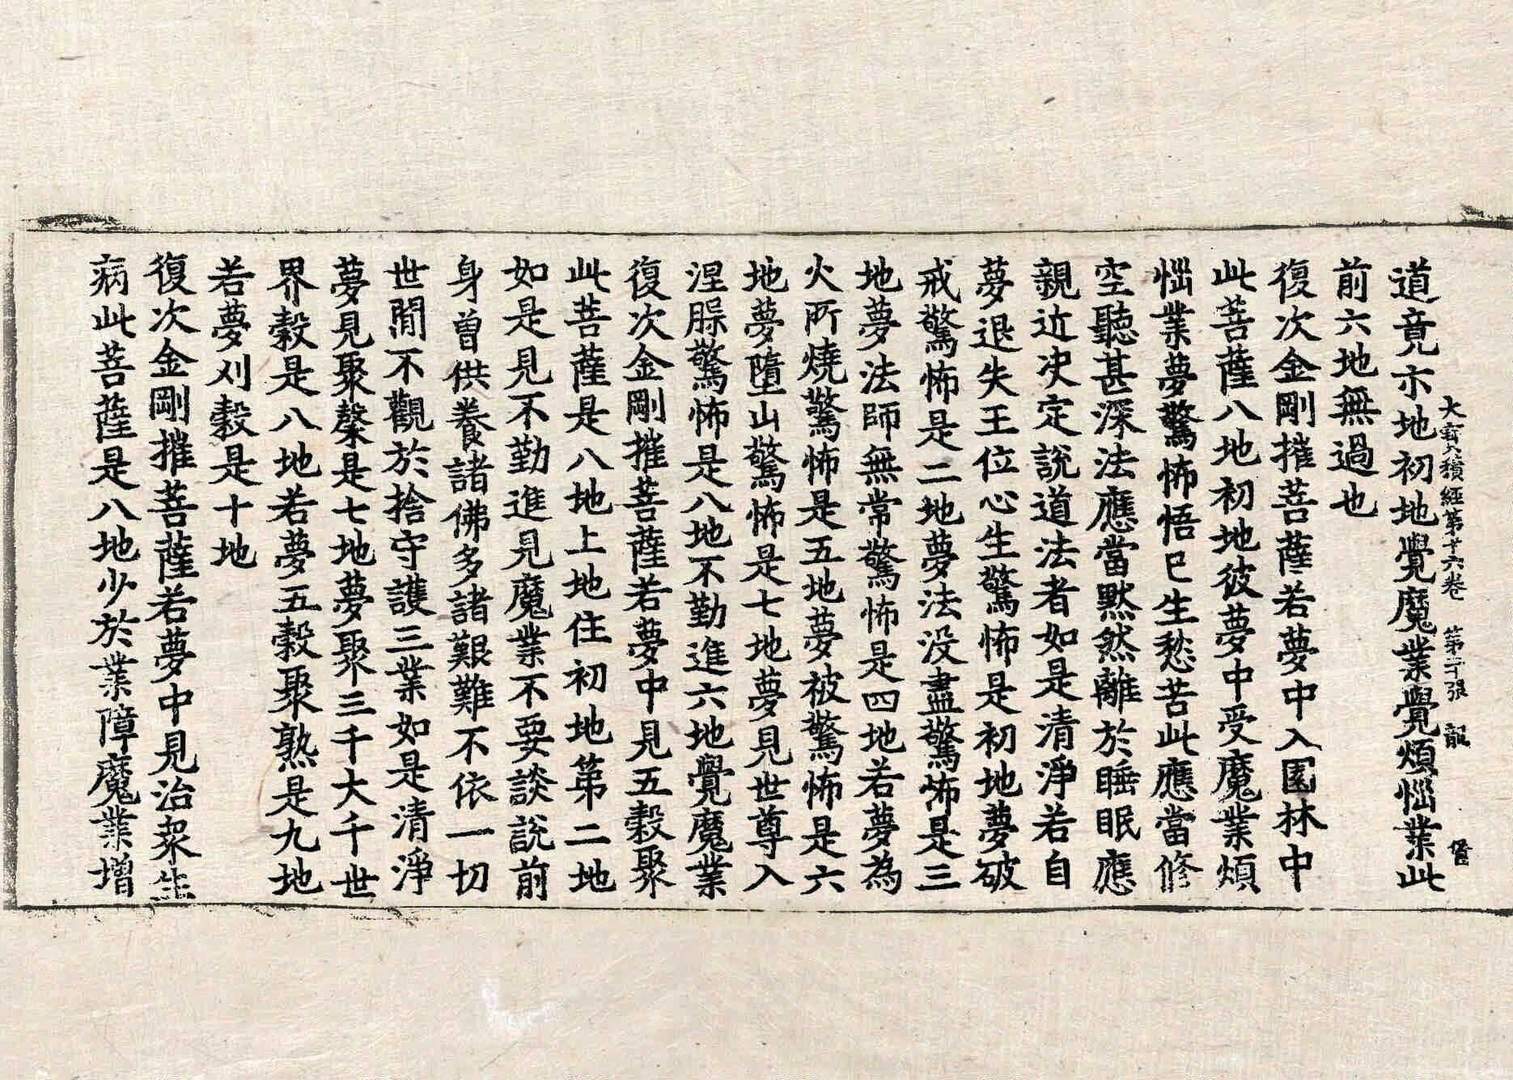 大寶積經第十六卷 第二十張 龍
道竟示地初地覺魔業覺煩惱業此
前六地無過也
復次金剛摧菩薩若夢中入園林中
此菩薩八地初地彼夢中受魔業煩
惱業夢驚怖悟已生愁苦此應當修
空聽甚深法應當默然離於睡眠應
親近决定說道法者如是清淨若自
夢退失王位心生驚怖是初地夢破
戒驚怖是二地夢法没盡驚怖是三
地夢法師無常驚怖是四地若夢為
火所燒驚怖是五地夢被驚怖是六
地夢墮山驚怖是七地夢見世尊入
涅槃驚怖是八地不勤進六地覺魔業
復次金剛摧菩薩若夢中見五穀聚
此菩薩是八地上地住初地第二地
如是見不勤進見魔業不要談說前
身曾供養諸佛多諸艱難不依一切
世間不觀於捨守護三業如是清淨
夢見聚䅽是七地夢聚三千大千世
界穀是八地若夢五穀聚熟是九地
若夢刈穀是十地
復次金剛摧菩薩若夢中見治衆生
病此菩薩是八地少於業障魔業增